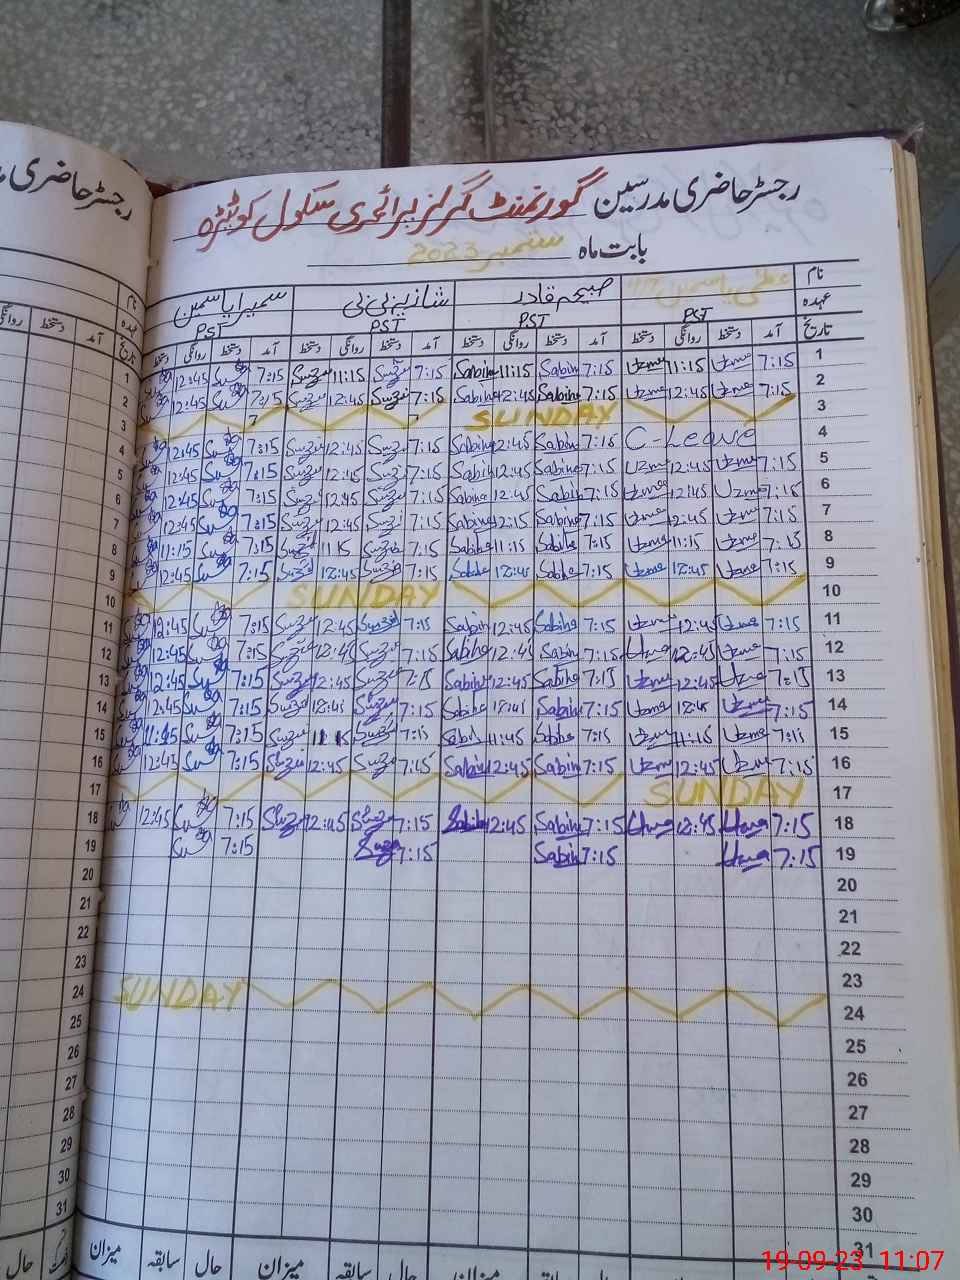 رجسٹر حاضری مدرسین گورنمنٹ گرلز پرائمری سکول کوٹیڑہ
بابت ماہ ستمبر 2023
رجسٹر حاضری
نام عظمیٰ یاسمین صبیحہ قادر شازیہ بی بی سمیرا یاسمین
عہدہ PST PST PST PST
تاریخ آمد دستخط روانگی دستخط آمد دستخط روانگی دستخط آمد دستخط روانگی دستخط آمد دستخط روانگی دستخط
1 7:15 Uzma 11:15 Uzma 7:15 Sabiha 11:15 Sabiha 7:15 11:15 7:15 12:45
2 7:15 Uzma 12:45 Uzma 7:15 Sabiha 12:45 Sabiha 7:15 12:45 7:15 12:45
3 SUNDAY
4 C-Leave 7:15 Sabiha 12:45 Sabiha 7:15 12:45 7:15 12:45
5 7:15 Uzma 12:45 Uzma 7:15 Sabiha 12:45 Sabiha 7:15 12:45 7:15 12:45
6 7:15 Uzma 12:45 Uzma 7:15 Sabiha 12:45 Sabiha 7:15 12:45 7:15 12:45
7 7:15 Uzma 12:45 Uzma 7:15 Sabiha 12:15 Sabiha 7:15 12:45 7:15 12:45
8 7:15 Uzma 11:15 Uzma 7:15 Sabiha 11:15 Sabiha 7:15 11:15 7:15 11:15
9 7:15 Uzma 12:45 Uzma 7:15 Sabiha 12:45 Sabiha 7:15 12:45 7:15 12:45
10 SUNDAY
11 7:15 Uzma 12:45 Uzma 7:15 Sabiha 12:45 Sabiha 7:15 12:45 7:15 12:45
12 7:15 Uzma 12:45 Uzma 7:15 Sabiha 12:45 Sabiha 7:15 12:45 7:15 12:45
13 7:15 Uzma 12:45 Uzma 7:15 Sabiha 12:45 Sabiha 7:15 12:45 7:15 12:45
14 7:15 Uzma 12:45 Uzma 7:15 Sabiha 12:45 Sabiha 7:15 12:45 7:15 12:45
15 7:15 Uzma 11:15 Uzma 7:15 Sabiha 11:45 Sabiha 7:15 11:15 7:15 11:15
16 7:15 Uzma 12:45 Uzma 7:15 Sabiha 12:45 Sabiha 7:45 12:45 7:15 12:45
17 SUNDAY
18 7:15 Uzma 12:45 Uzma 7:15 Sabiha 12:45 Sabiha 7:15 12:45 7:15 12:45
19 7:15 Uzma 7:15 Sabiha 7:15 7:15
20
21
22
23
24 SUNDAY
25
26
27
28
29
30
31
میزان سابقہ حال میزان سابقہ حال میزان سابقہ حال
نام
عہدہ
تاریخ آمد دستخط روانگی
1
2
3
4
5
6
7
8
9
10
11
12
13
14
15
16
17
18
19
20
21
22
23
24
25
26
27
28
29
30
31
حال
19-09-23 11:07